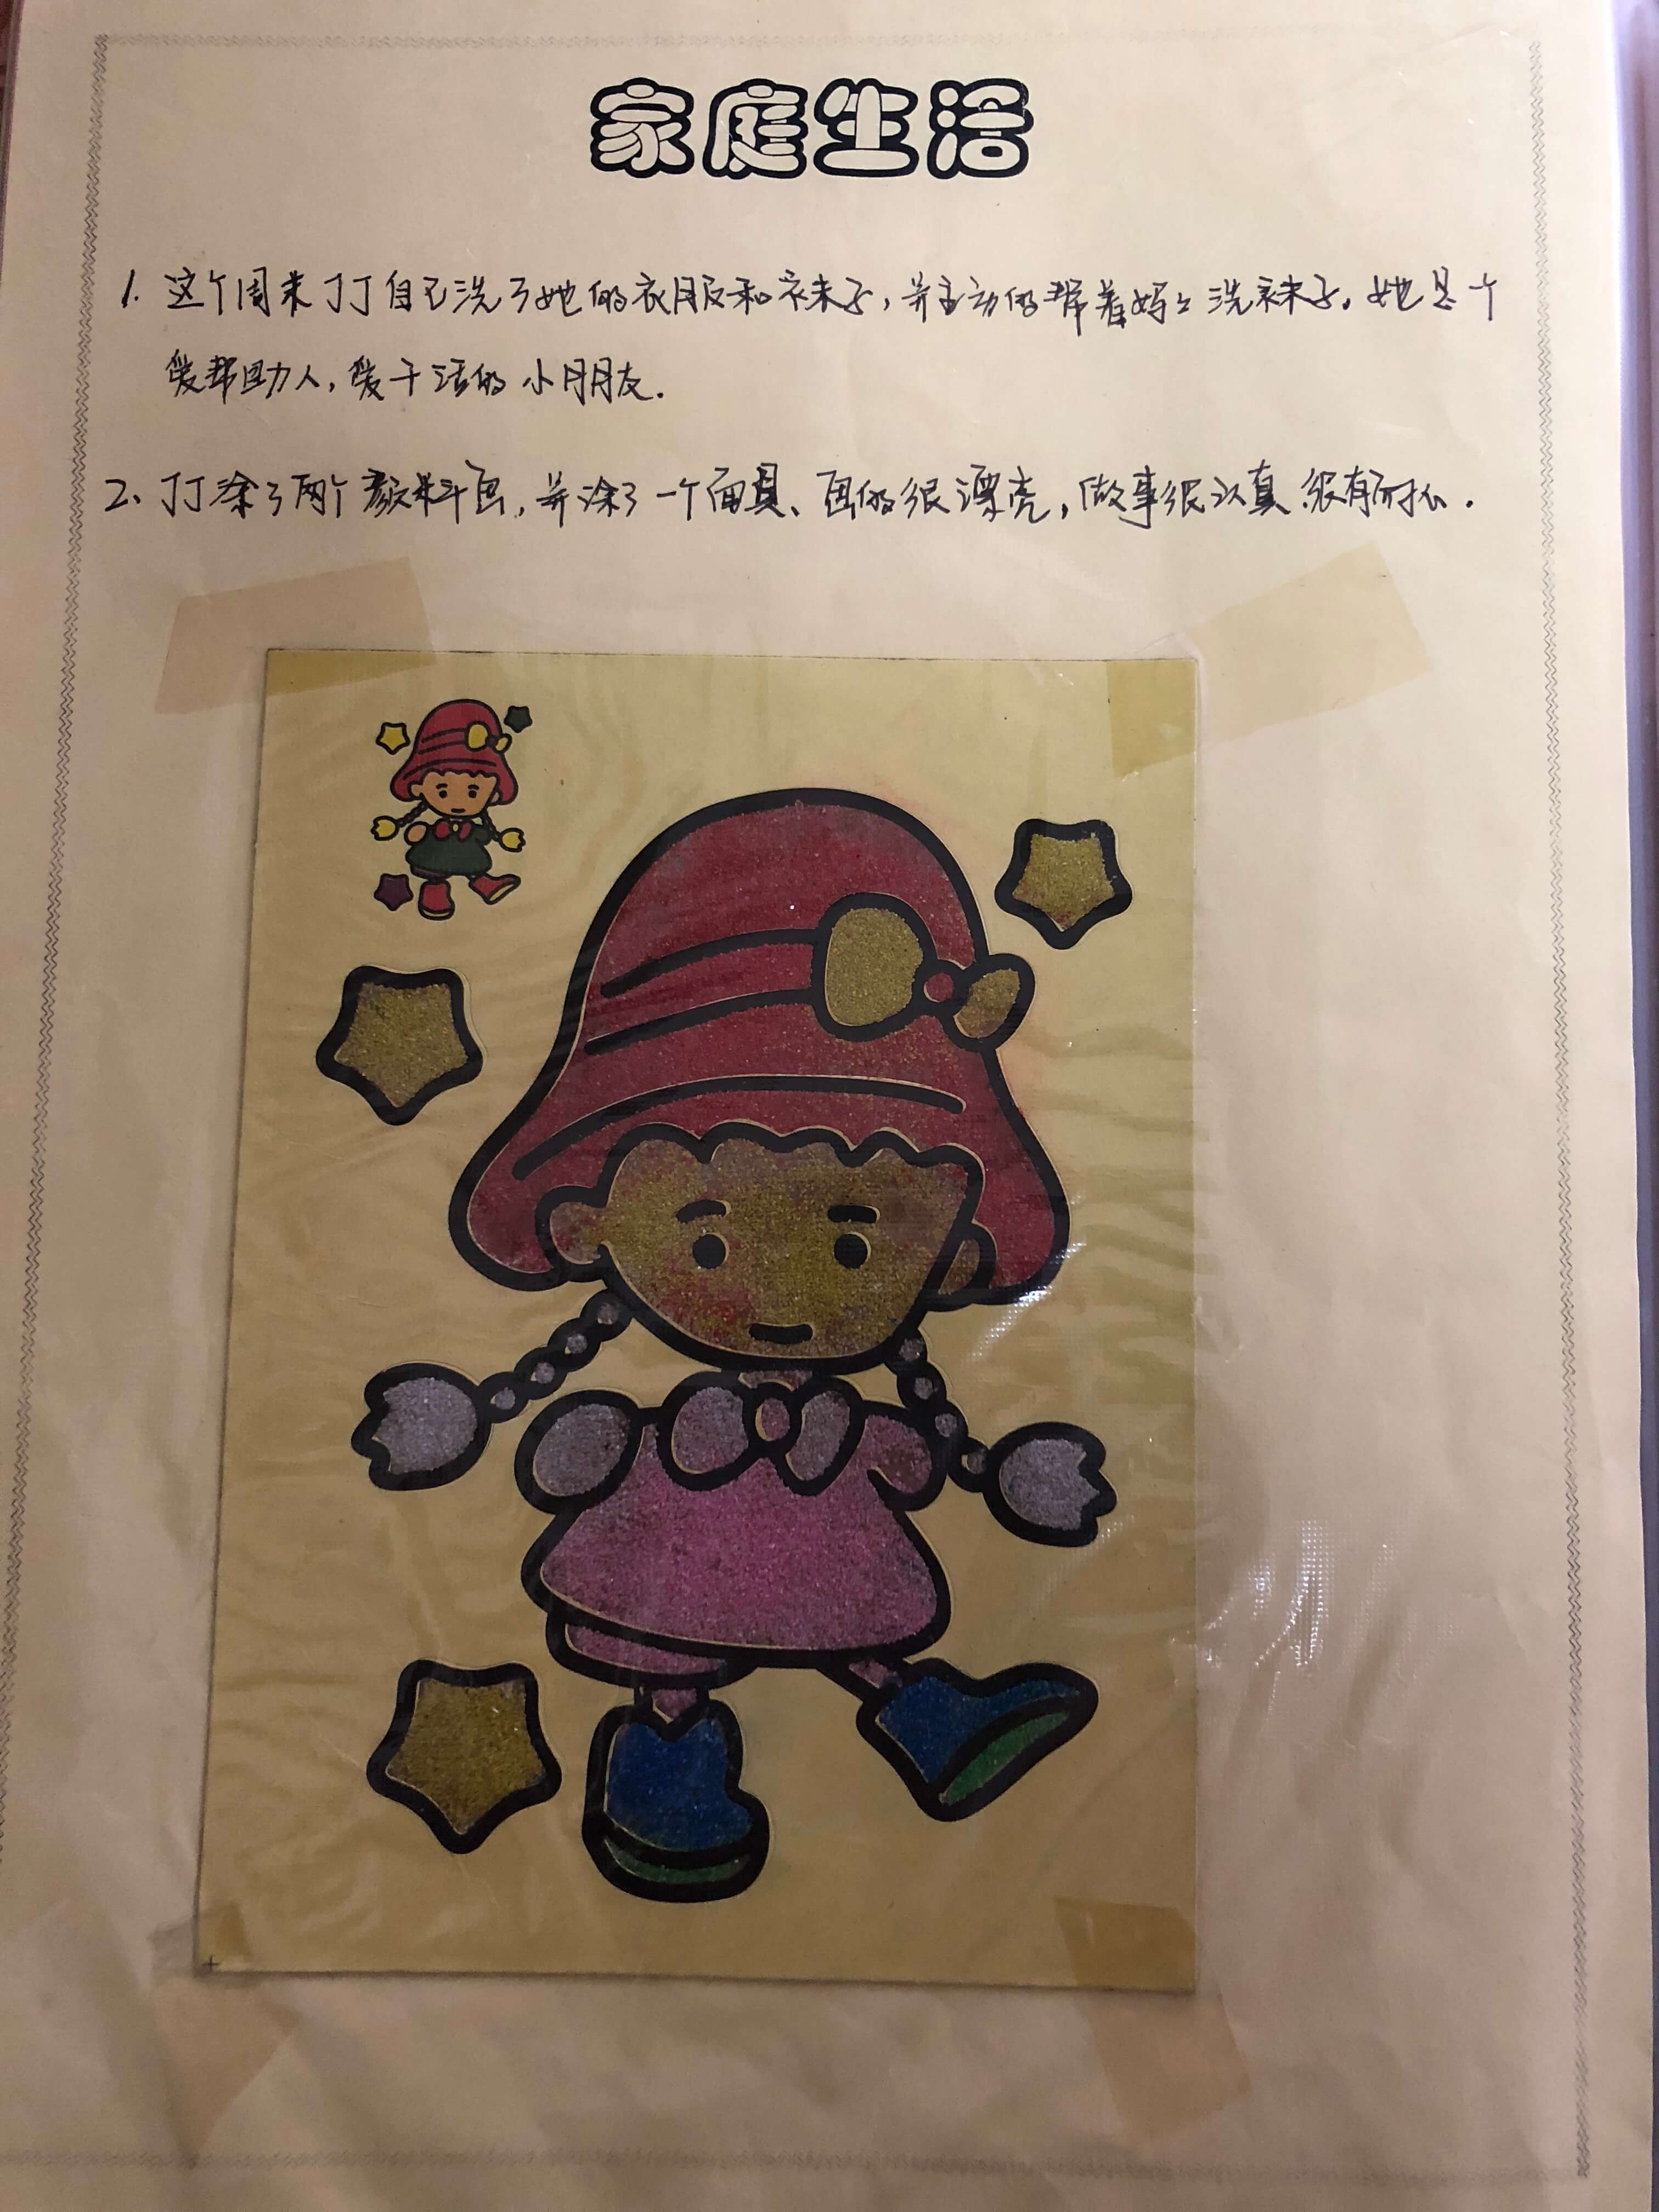 家庭生活
1. 这个周末丁丁自己洗了她的衣服和袜子，并主动的帮着妈妈洗袜子。她是个
爱帮助人，爱干活的小朋友.
2、丁丁涂了两个颜料画，并涂了一个面具、画的很漂亮，做事很认真.很有耐心.